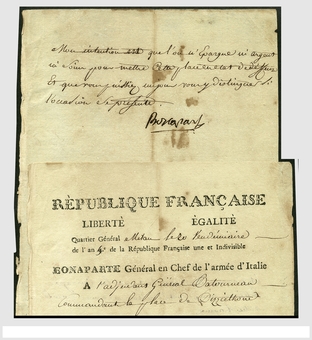 Mon intention est que l'on n'épargne ni argent
ni soins pour mettre cette place en état de défense
Et que vous puissiez un jour vous y distinguer si
l'occasion se présente.
Bonaparte
RÉPUBLIQUE FRANÇAISE
LIBERTÉ ÉGALITÉ
Quartier Général le 20 Vendémiaire
de l'an de la République Française une et Indivisible
BONAPARTE Général en Chef de l'armée d'Italie
A l'adjudant Général
commandant la place de